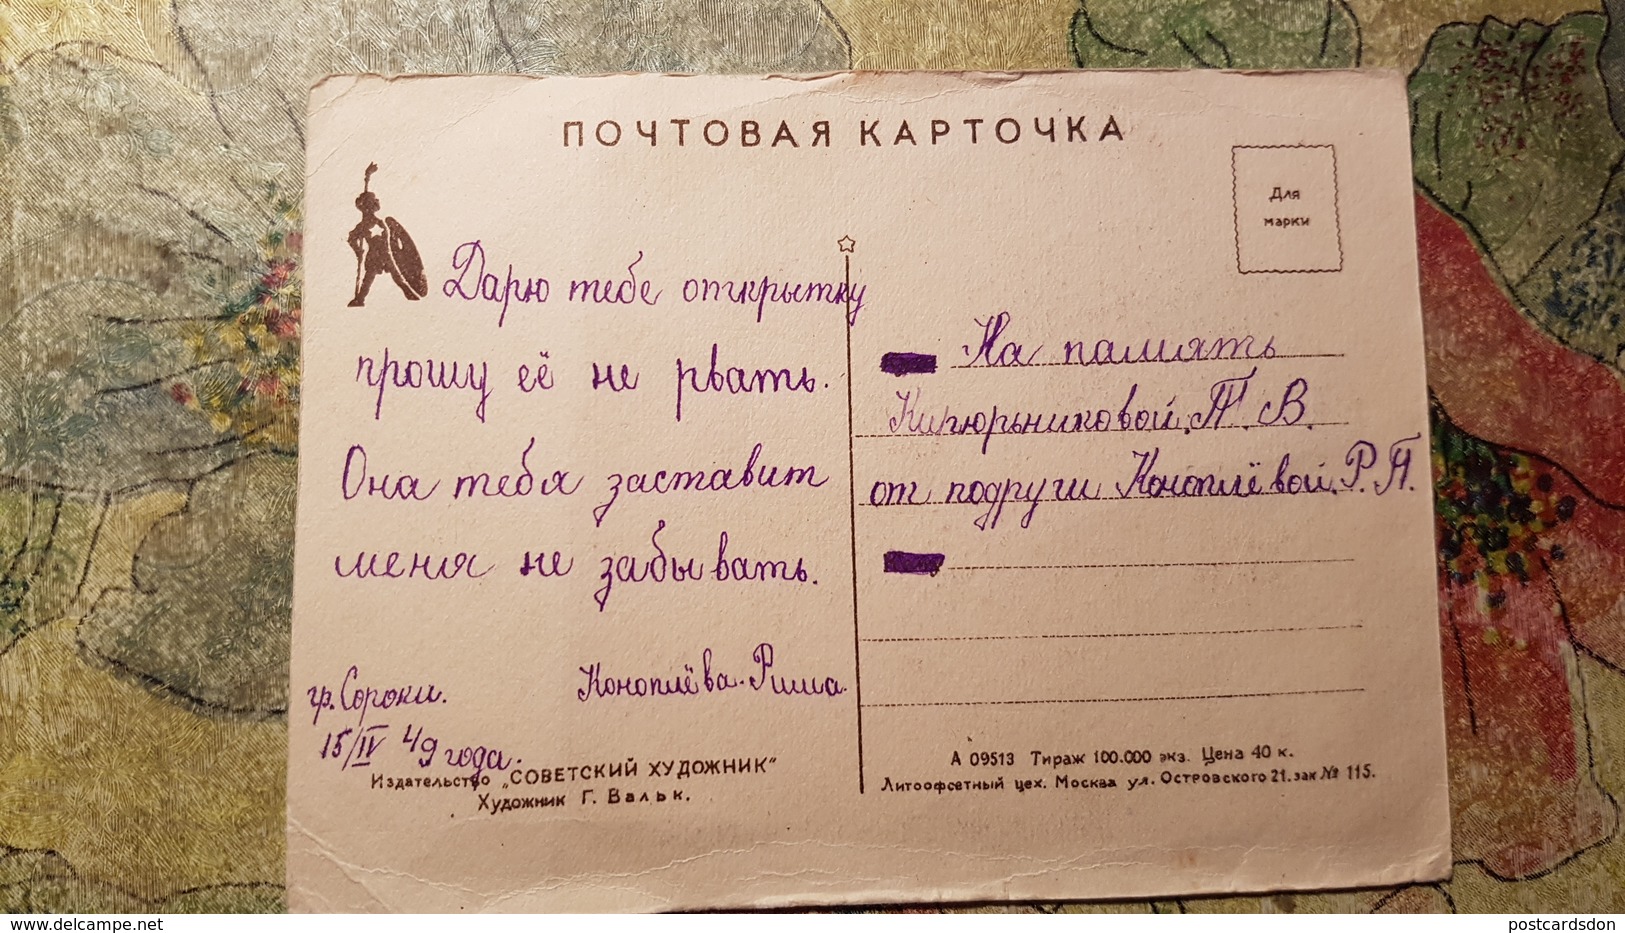 ПОЧТОВАЯ КАРТОЧКА
Для
марки
Дарю тебе открытку
прошу её не рвать.
Она тебя заставит
меня не забывать.
гр. Сороки.
15/IV 49 года.
Коноплёва Римма.
На память
Т. В.
от подруги Коноплёвой Р. П.
Издательство „СОВЕТСКИЙ ХУДОЖНИК"
Художник Г. Вальк.
А 09513 Тираж 100.000 экз. Цена 40 к.
Литоофсетный цех. Москва ул. Островского 21. зак № 115.
My Collection
postcardsdon